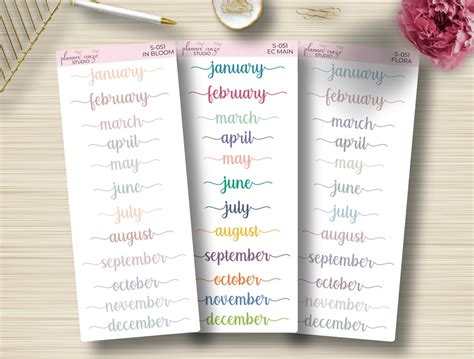 planner
STUDIO
S-051
IN BLOOM
january
february
march
april
may
june
july
august
september
october
november
december
planner
STUDIO
S-051
EC MAIN
january
february
march
april
may
june
july
august
september
october
november
december
planner
STUDIO
S-051
FLORA
january
february
march
april
may
june
july
august
september
october
november
december